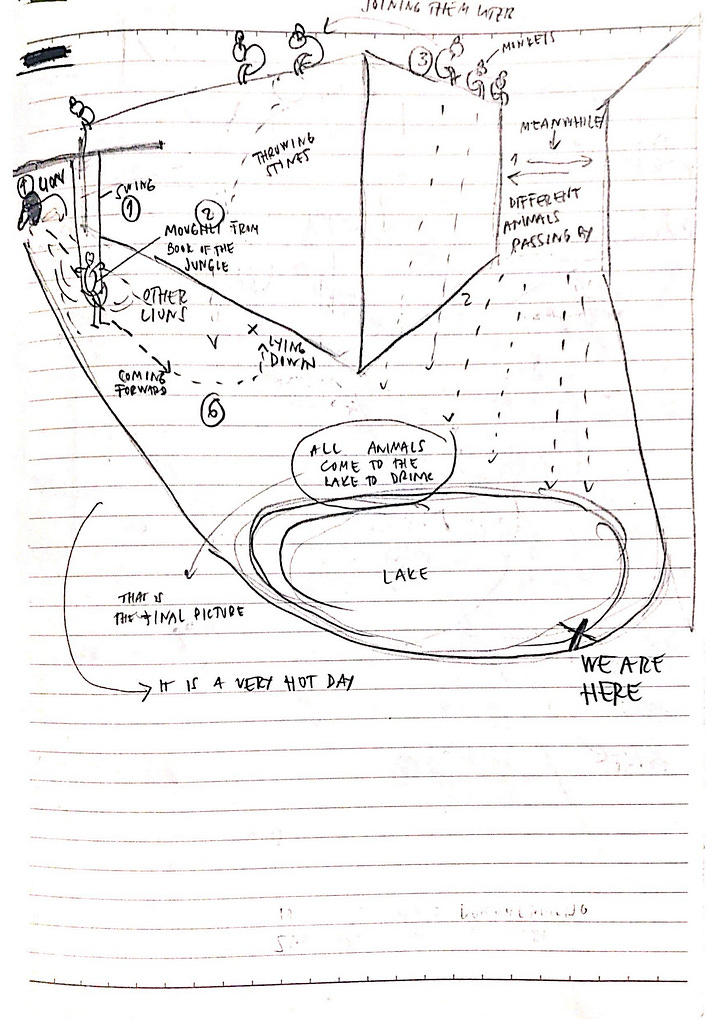 JOINING THEM LATER
3
MONKEYS
MEANWHILE
THROWING
STINES
1
LION
SWING
1
2
MOUGHLI FROM
BOOK OF THE
JUNGLE
DIFFERENT
ANIMALS
PASSING BY
OTHER
LIONS
2
LYING
DOWN
COMING
FORWARD
6
ALL ANIMALS
COME TO THE
LAKE TO DRINK
LAKE
THAT IS
THE FINAL PICTURE
WE ARE
HERE
IT IS A VERY HOT DAY